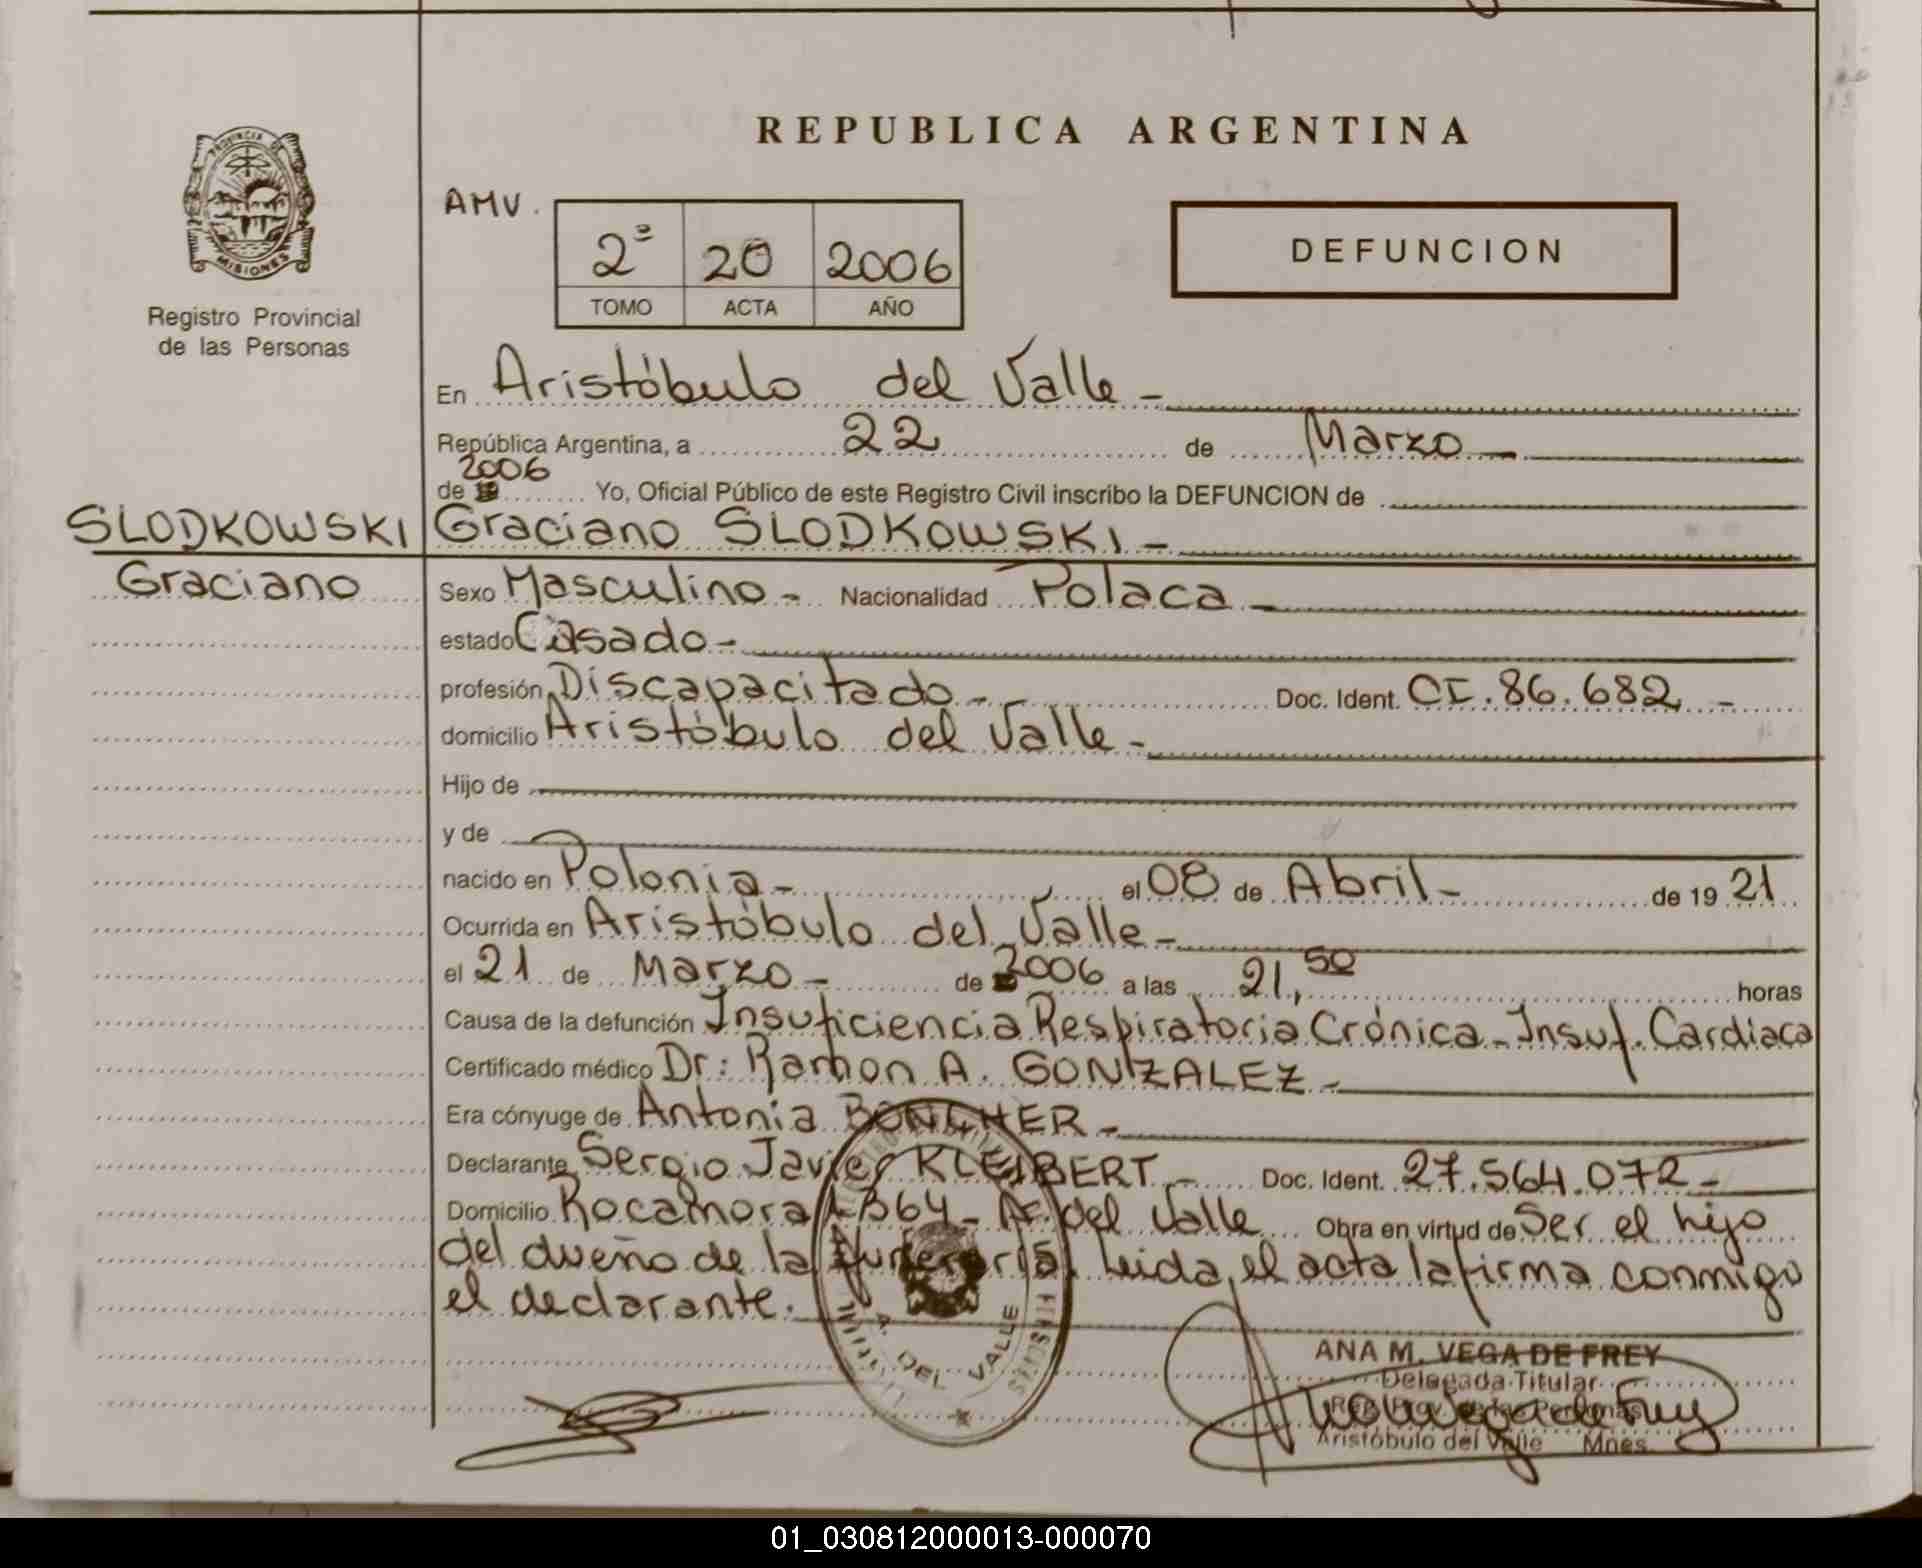 REPUBLICA ARGENTINA
PROVINCIA DE
MISIONES
Registro Provincial
de las Personas
AMV.
2º 20 2006
TOMO ACTA AÑO
DEFUNCION
En Aristóbulo del Valle -
República Argentina, a 22 de Marzo
2006
de 19 Yo, Oficial Público de este Registro Civil inscribo la DEFUNCION de
SLODKOWSKI Graciano SLODKOWSKI -
Graciano Sexo Masculino - Nacionalidad Polaca -
estado Casado -
profesión Discapacitado - Doc. Ident. CI. 86.682 -
domicilio Aristóbulo del Valle -
Hijo de
y de
nacido en Polonia - el 08 de Abril - de 19 21
Ocurrida en Aristóbulo del Valle -
el 21 de Marzo - de 2006 a las 21,50 horas
Causa de la defunción Insuficiencia Respiratoria Crónica - Insuf. Cardiaca
Certificado médico Dr: Ramon A. GONZALEZ -
Era cónyuge de Antonia BONCHER -
Declarante Sergio Javier KLEIBERT - Doc. Ident. 27.564.072 -
Domicilio Rocamora 1364 - A. del Valle Obra en virtud de Ser el hijo
del dueño de la funeraria. Leida, el acta la firma conmigo
el declarante.
A. DEL VALLE
ANA M. VEGA DE FREY
Delegada Titular
Reg. Prov. de las Personas
Aristóbulo del Valle Mnes.
01_030812000013-000070